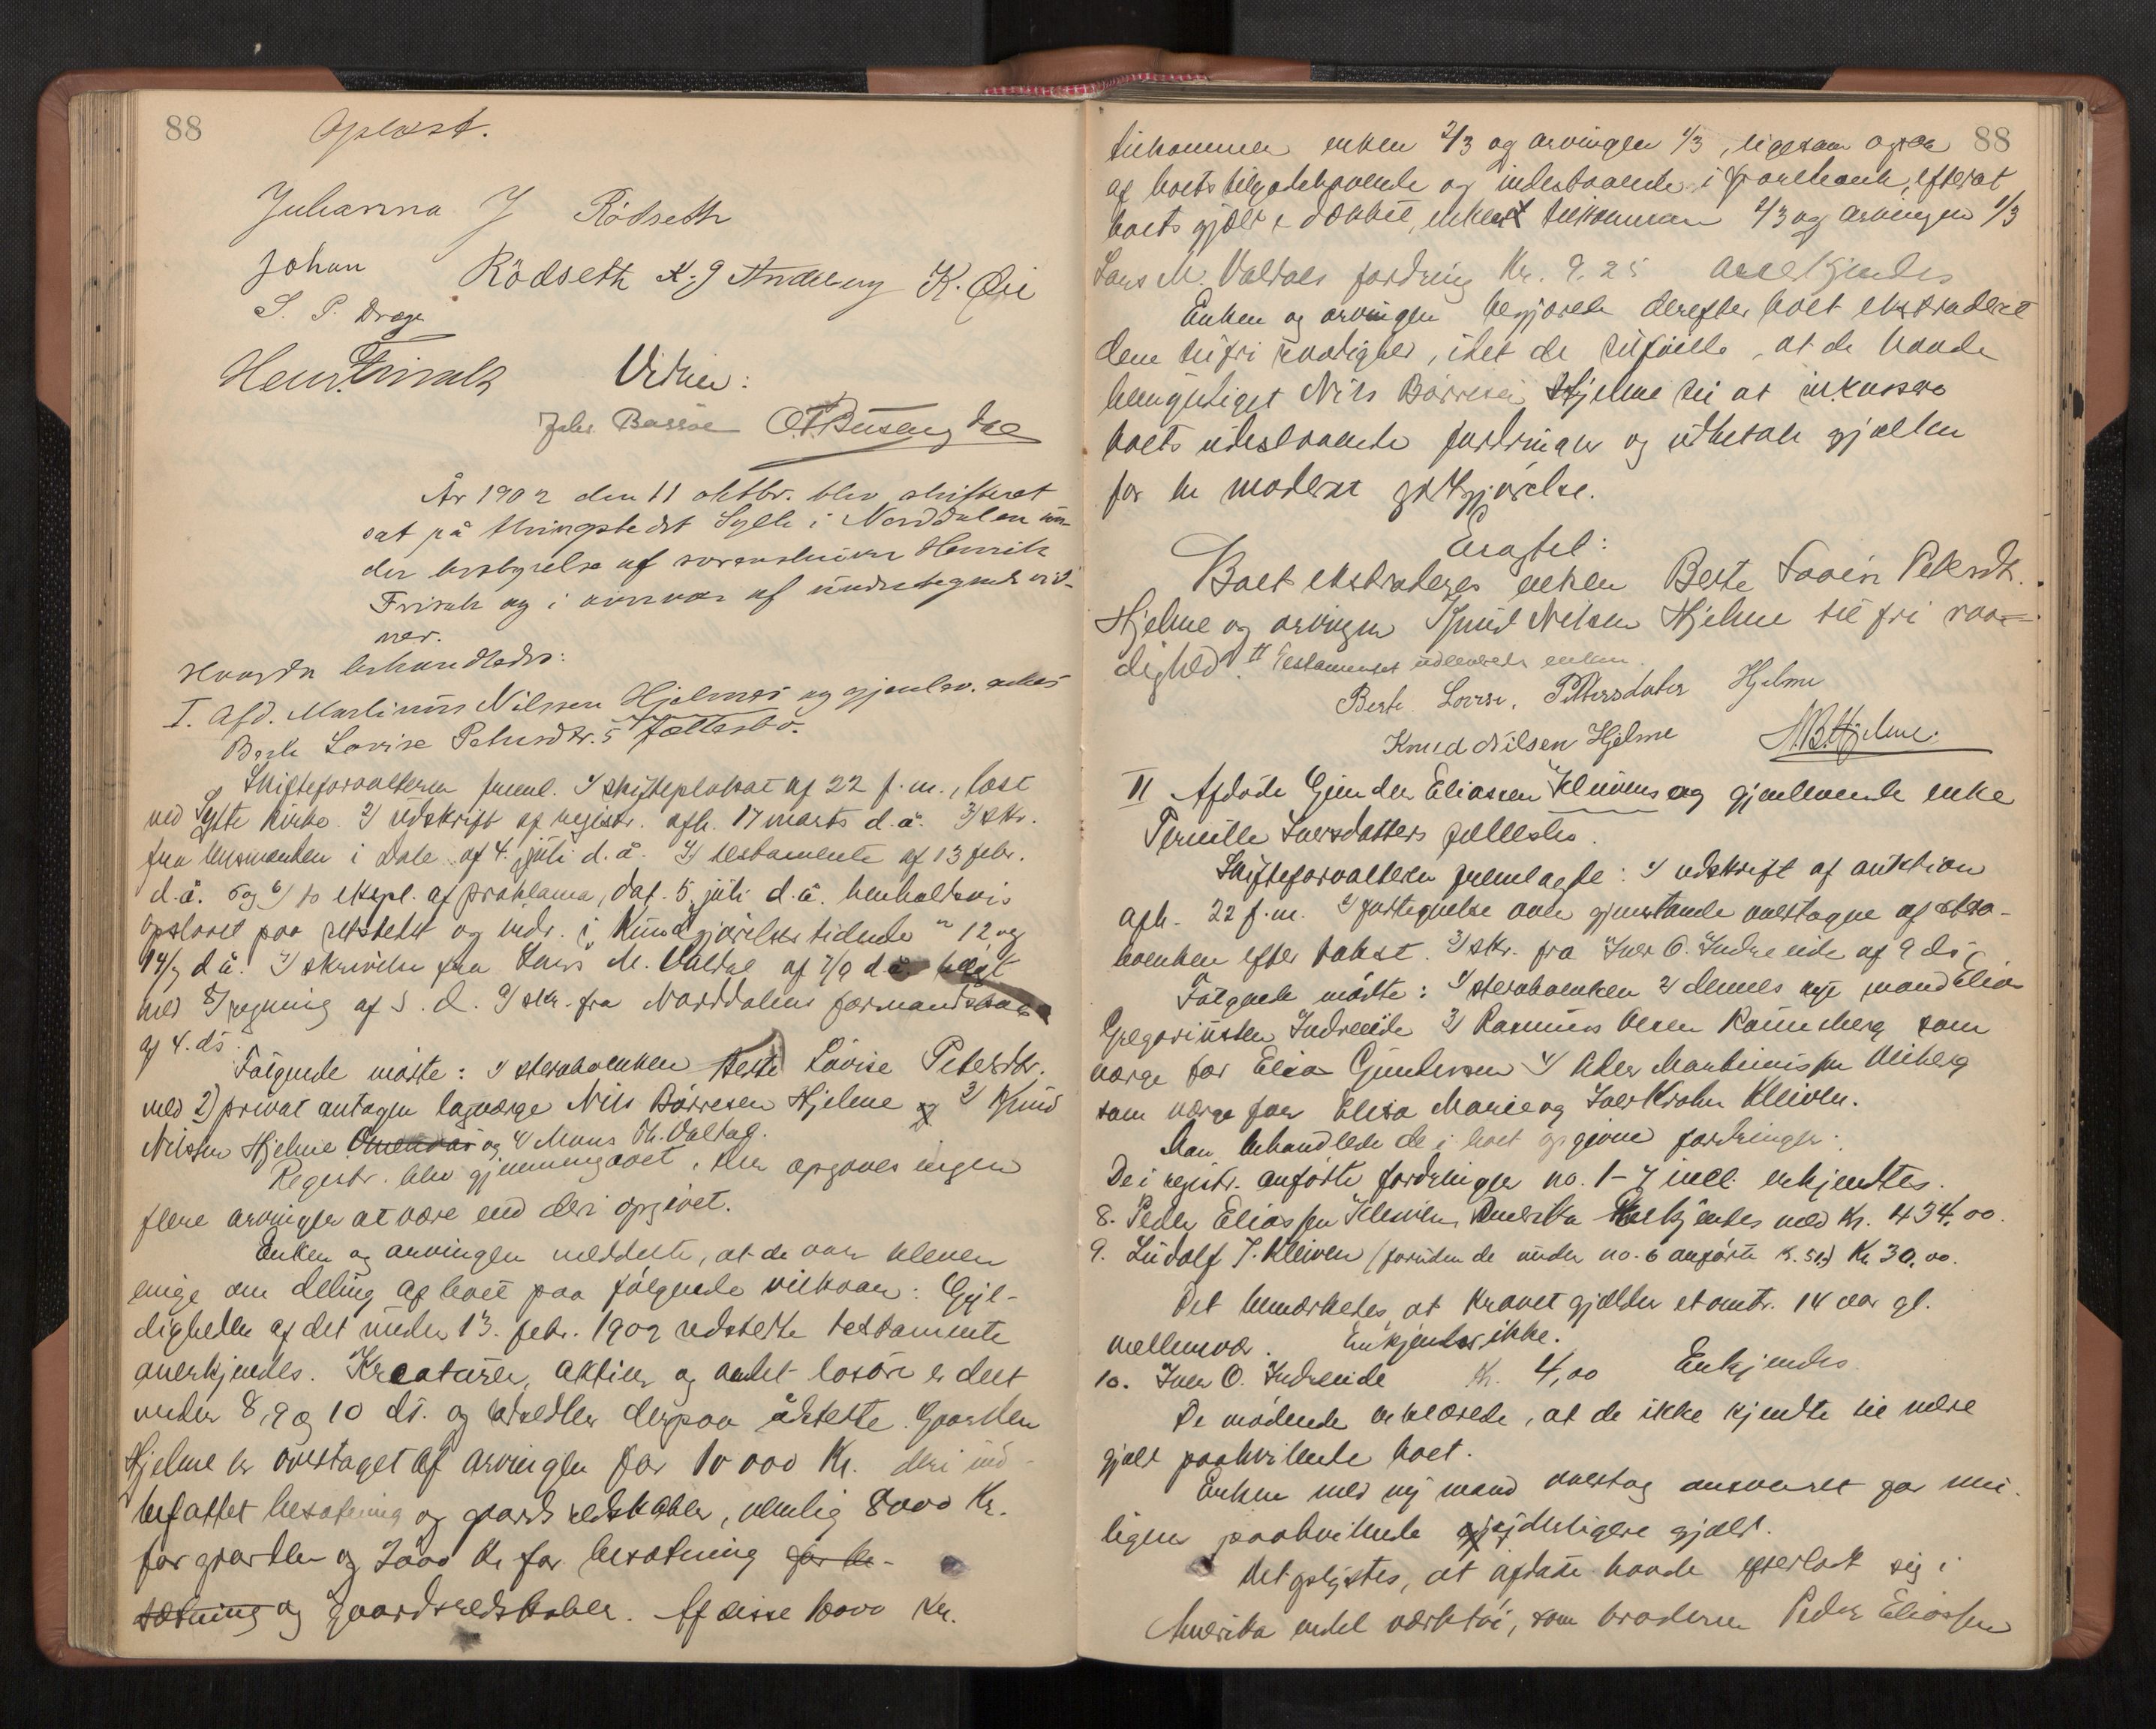 88
Oplæst.
Johanna J Rödseth
Johan Rödseth K. J. K. Øie
S. P. Drage
Henr. Frisak Vidner:
Johs Bassøe
År 1902 den 11 oktbr. blev skifteret
sat på thingstedet Sylte i Norddalen un-
der bestyrelse af sorenskriver Henrik
Frisak og i nærvær af undertegnede vid-
ner.
Hvorda behandledes:
I. Afd. Martinus Nilssen Hjelmes og gjenlev. enkes
Berte Lovise Petersdtr.s fællesbo.
Skifteforvalteren freml. 1/ skifteplakat af 22 f.m., læst
ved Sylte kirke. 2/ udskrift af registr. afh. 17 marts d.å. 3/ skr.
fra lensmanden i Dale af 4. juli d.å. 4/ testamente af 13 febr.
d.å. 5 og 6/ to ekspl. af proklama, dat. 5. juli d.å. henholdsvis
opslaaet paa retstedet og indr. i "Kundgjørelsestidende" 12 og
14/7 d.å. 7/ skrivelse fra Lars M. Valdal af 7/9 d.å. belagt
med 8/ regning af s.d. 9/ skr. fra Norddalens formandskab
af 4. ds.
Følgende mødte: 1/ stervboenken Berte Lovise Petersdtr.
med 2) privat antagen lagværge Nils Børresen Hjelme og 3/ Knud
Nilssen Hjelme og 4/ Mons Th. Valdal.
Registr. blev gjennemgaaet. Der opgaves ingen
flere arvinger at være end deri opgivet.
Enken og arvingen meddelte, at de var bleven
enige om deling af boet paa følgende vilkaar: Gyl-
digheden af det under 13. febr. 1902 udstedte testamente
anerkjendes. Kreaturer, aktier og andet løsøre er delt
under 8, 9 og 10 ds. og derpaa udstedte. Gaarden
Hjelme er overtaget af arvingen for 10 000 Kr. deri ind-
befattet besætning og gaardsredskaber, nemlig 8000 Kr.
for gaarden og 2000 Kr for besætning for be-
sætning og gaardsredskaber. Af disse 10000 Kr.
88
tilkommer enken 2/3 og arvingen 1/3, ligesom ogsaa
af boets tilgodehavende og indestaaende i sparebank, efterat
boets gjæld er dækket, enken tilkommer 2/3 og arvingen 1/3
Lars M. Valdals fordring Kr. 9.25 anerkjendes
Enken og arvingen begjærede derefter boet ekstraderet
dem til fri raadighed, idet de tilføiede, at de havde
bemyndiget Nils Børresen Hjelme til at inkassere
boets udestaaende fordringer og udbetale gjælden
for en moderat godtgjørelse.
Eragtet:
Boet ekstraderes enken Berte Lovise Petersdtr.
Hjelme og arvingen Knud Nilsen Hjelme til fri raa-
dighed. Testamentet udleveredes enken.
Berte Lovise Pettersdatter Hjelme
Knud Nilsen Hjelme N.B.Hjelme.
II Afdøde Gunder Eliassen Kleivens og gjenlevende enke
Pernille Iversdatters fællesbo.
Skifteforvalteren fremlagde: 1/ udskrift af auktion
afh. 22 f.m. 2/ fortegnelse over gjenstande overtagne af sterv-
boenken efter takst. 3/ skr. fra Iver O. Indreeide af 9 ds.
Følgende mødte: 1/ stervboenken 2/ dennes nye mand Elias
Gregoriussen Indreeide 3/ Rasmus Olsen Rønneberg som
værge for Elias Gundersen 4/ Martinussen Uriberg
som værge for Elisa Marie og Iver Krohn Kleiven.
Man behandlede de i boet opgivne fordringer:
De i registr. anførte fordringer no. 1-7 incl. erkjendtes.
8. Peder Eliassen Kleiven, Amerika Erkjendes med Kr. 434,00.
9. Ludolf J. Kleiven (foruden de under no. 6 anførte Kr. 51) Kr 30,00.
Det bemærkedes, at kravet gjælder et omtr. 14 aar gl.
mellemvær. Erkjendes ikke.
10. Iver O. Indreeide Kr. 4,00 Erkjendes
De mødende erklærede, at de ikke kjendte til mere
gjæld paahvilende boet.
Enken med ny mand overtog ansvaret for mu-
ligens paahvilende yderligere gjæld.
Det oplystes, at afdøde havde efterladt sig i
Amerika endel værktøi, som broderen Peder Eliassen